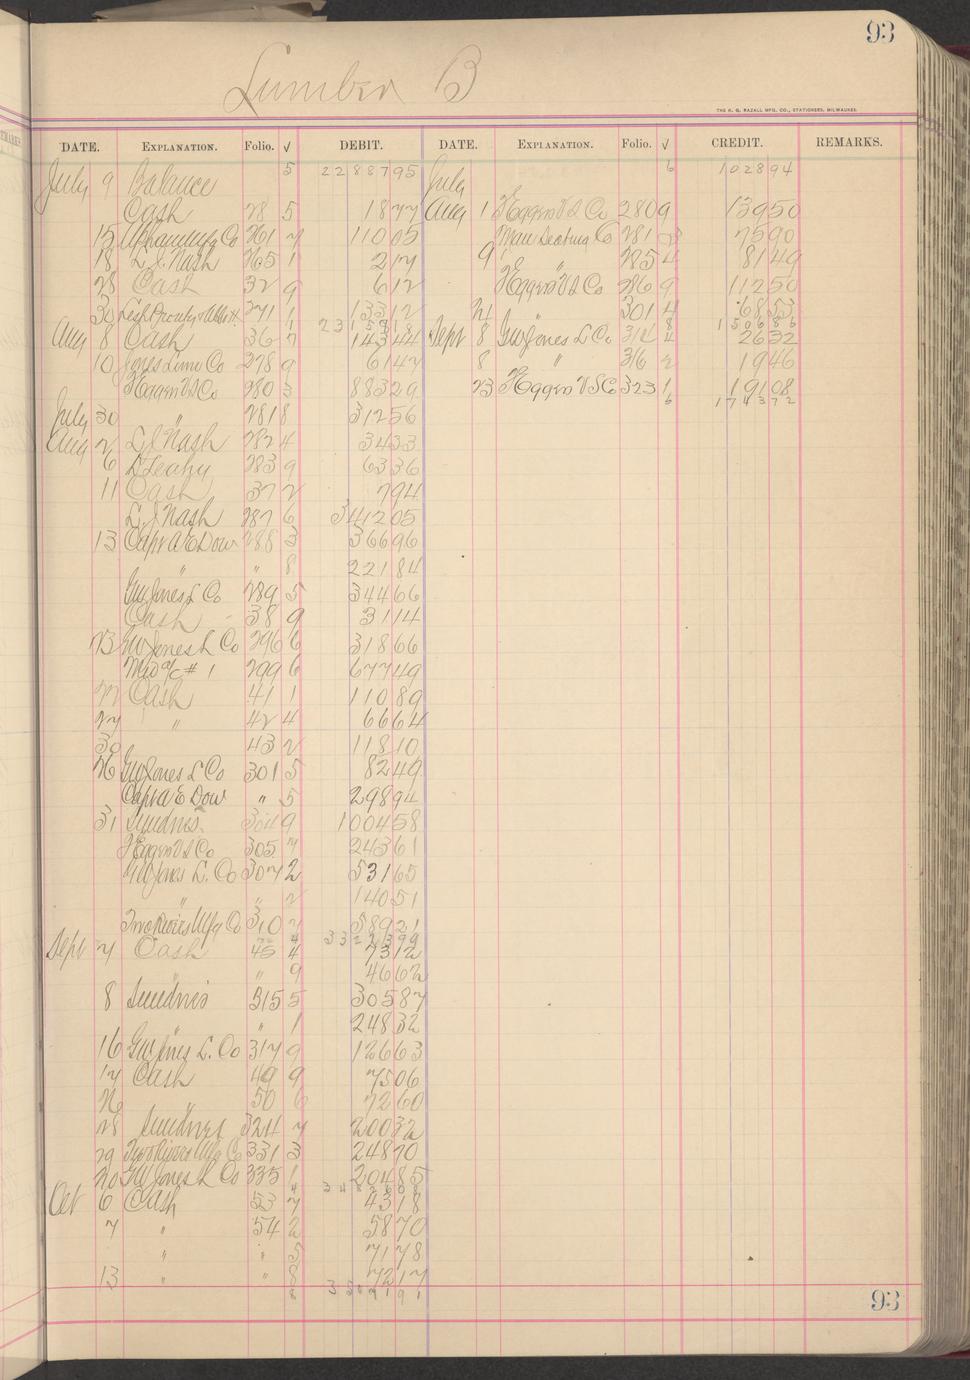 93
Lumber B
THE H. G. RAZALL MFG. CO., STATIONERS, MILWAUKEE.
DATE. EXPLANATION. Folio. √ DEBIT. DATE. EXPLANATION. Folio. √ CREDIT. REMARKS.
July 9 Balance 5 22887 95 July 6 1028 94
Cash 28 5 18 77 Aug 1 F Eggers V S Co 280 9 139 50
15 Mfg Co 261 7 110 05 Man Seating Co 281 75 90
18 L J. Nash 265 1 2 17 9 " 285 4 81 49
28 Cash 32 9 6 12 F Eggers V S Co 286 9 112 50
30 271 1 133 12 24 301 4 68 53
1 23158 18 8 1506 86
Aug 8 Cash 36 7 143 44 Sept 8 GW Jones L Co 314 4 26 32
10 Jones Lime Co 278 9 61 47 8 " 316 2 19 46
F Eggers V S Co 280 3 883 29 23 F Eggers V S Co 323 1 191 08
6 1743 72
July 30 " 281 8 312 56
Aug 2 L J Nash 282 4 34 33
6 D Leahy 283 9 63 36
11 Cash 37 2 7 94
L J Nash 287 6 3412 05
13 Capt A E Dow 288 3 366 96
" " 8 221 84
GW Jones L Co 289 5 344 66
Cash 38 9 31 14
23 GW Jones L Co 296 6 318 66
Mso a/c # 1 299 6 677 49
22 Cash 41 1 110 89
27 " 42 4 66 64
30 43 2 118 10
26 GW Jones L Co 301 5 82 49
Capt A E Dow " 5 298 94
31 Sundries 304 9 1004 58
F Eggers V S Co 305 7 243 61
GW Jones L. Co 307 2 531 65
" " 2 140 51
Two Rivers Mfg Co 310 7 589 21
4 33223 99
Sept 7 Cash 45 4 73 12
" " 9 46 62
8 Sundries 315 5 305 87
" 1 248 32
16 GW Jones L. Co 317 9 126 63
17 Cash 49 9 75 06
26 " 50 6 72 60
28 Sundries 324 7 200 32
29 Two Rivers Mfg Co 331 3 248 70
20 GW Jones L Co 335 1 204 85
4
Oct 6 Cash 53 7 43 18
7 " 54 2 58 70
" " 5 71 78
13 " " 8 72 17
8
93